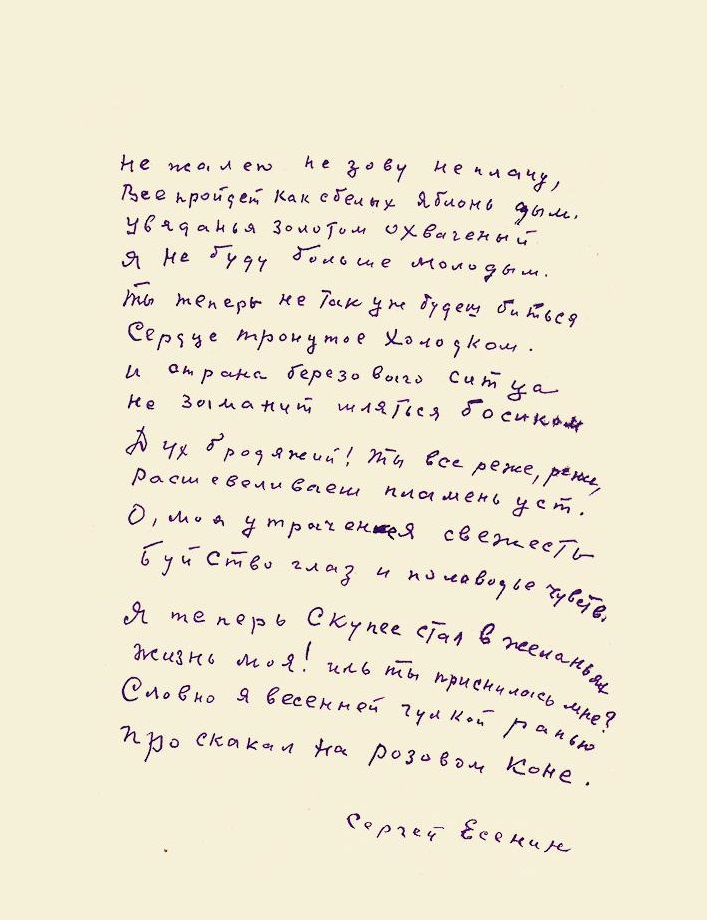 не жалею не зову не плачу,
Все пройдет как с белых яблонь дым.
Увяданья золотом охваченый
Я не буду больше молодым.
Ты теперь не так уж будеш биться
Сердце тронутое холодком.
и страна березового ситца
не заманит шляться босиком
Дух бродяжий! Ты все реже, реже,
расшевеливаеш пламень уст.
О, моя утраченная свежесть
Буйство глаз и половодье чувств.
Я теперь Скупее стал в желаньях
жизнь моя! иль ты приснилась мне?
Словно я весенней гулкой ранью
проскакал на розовом коне.
Сергей Есенин